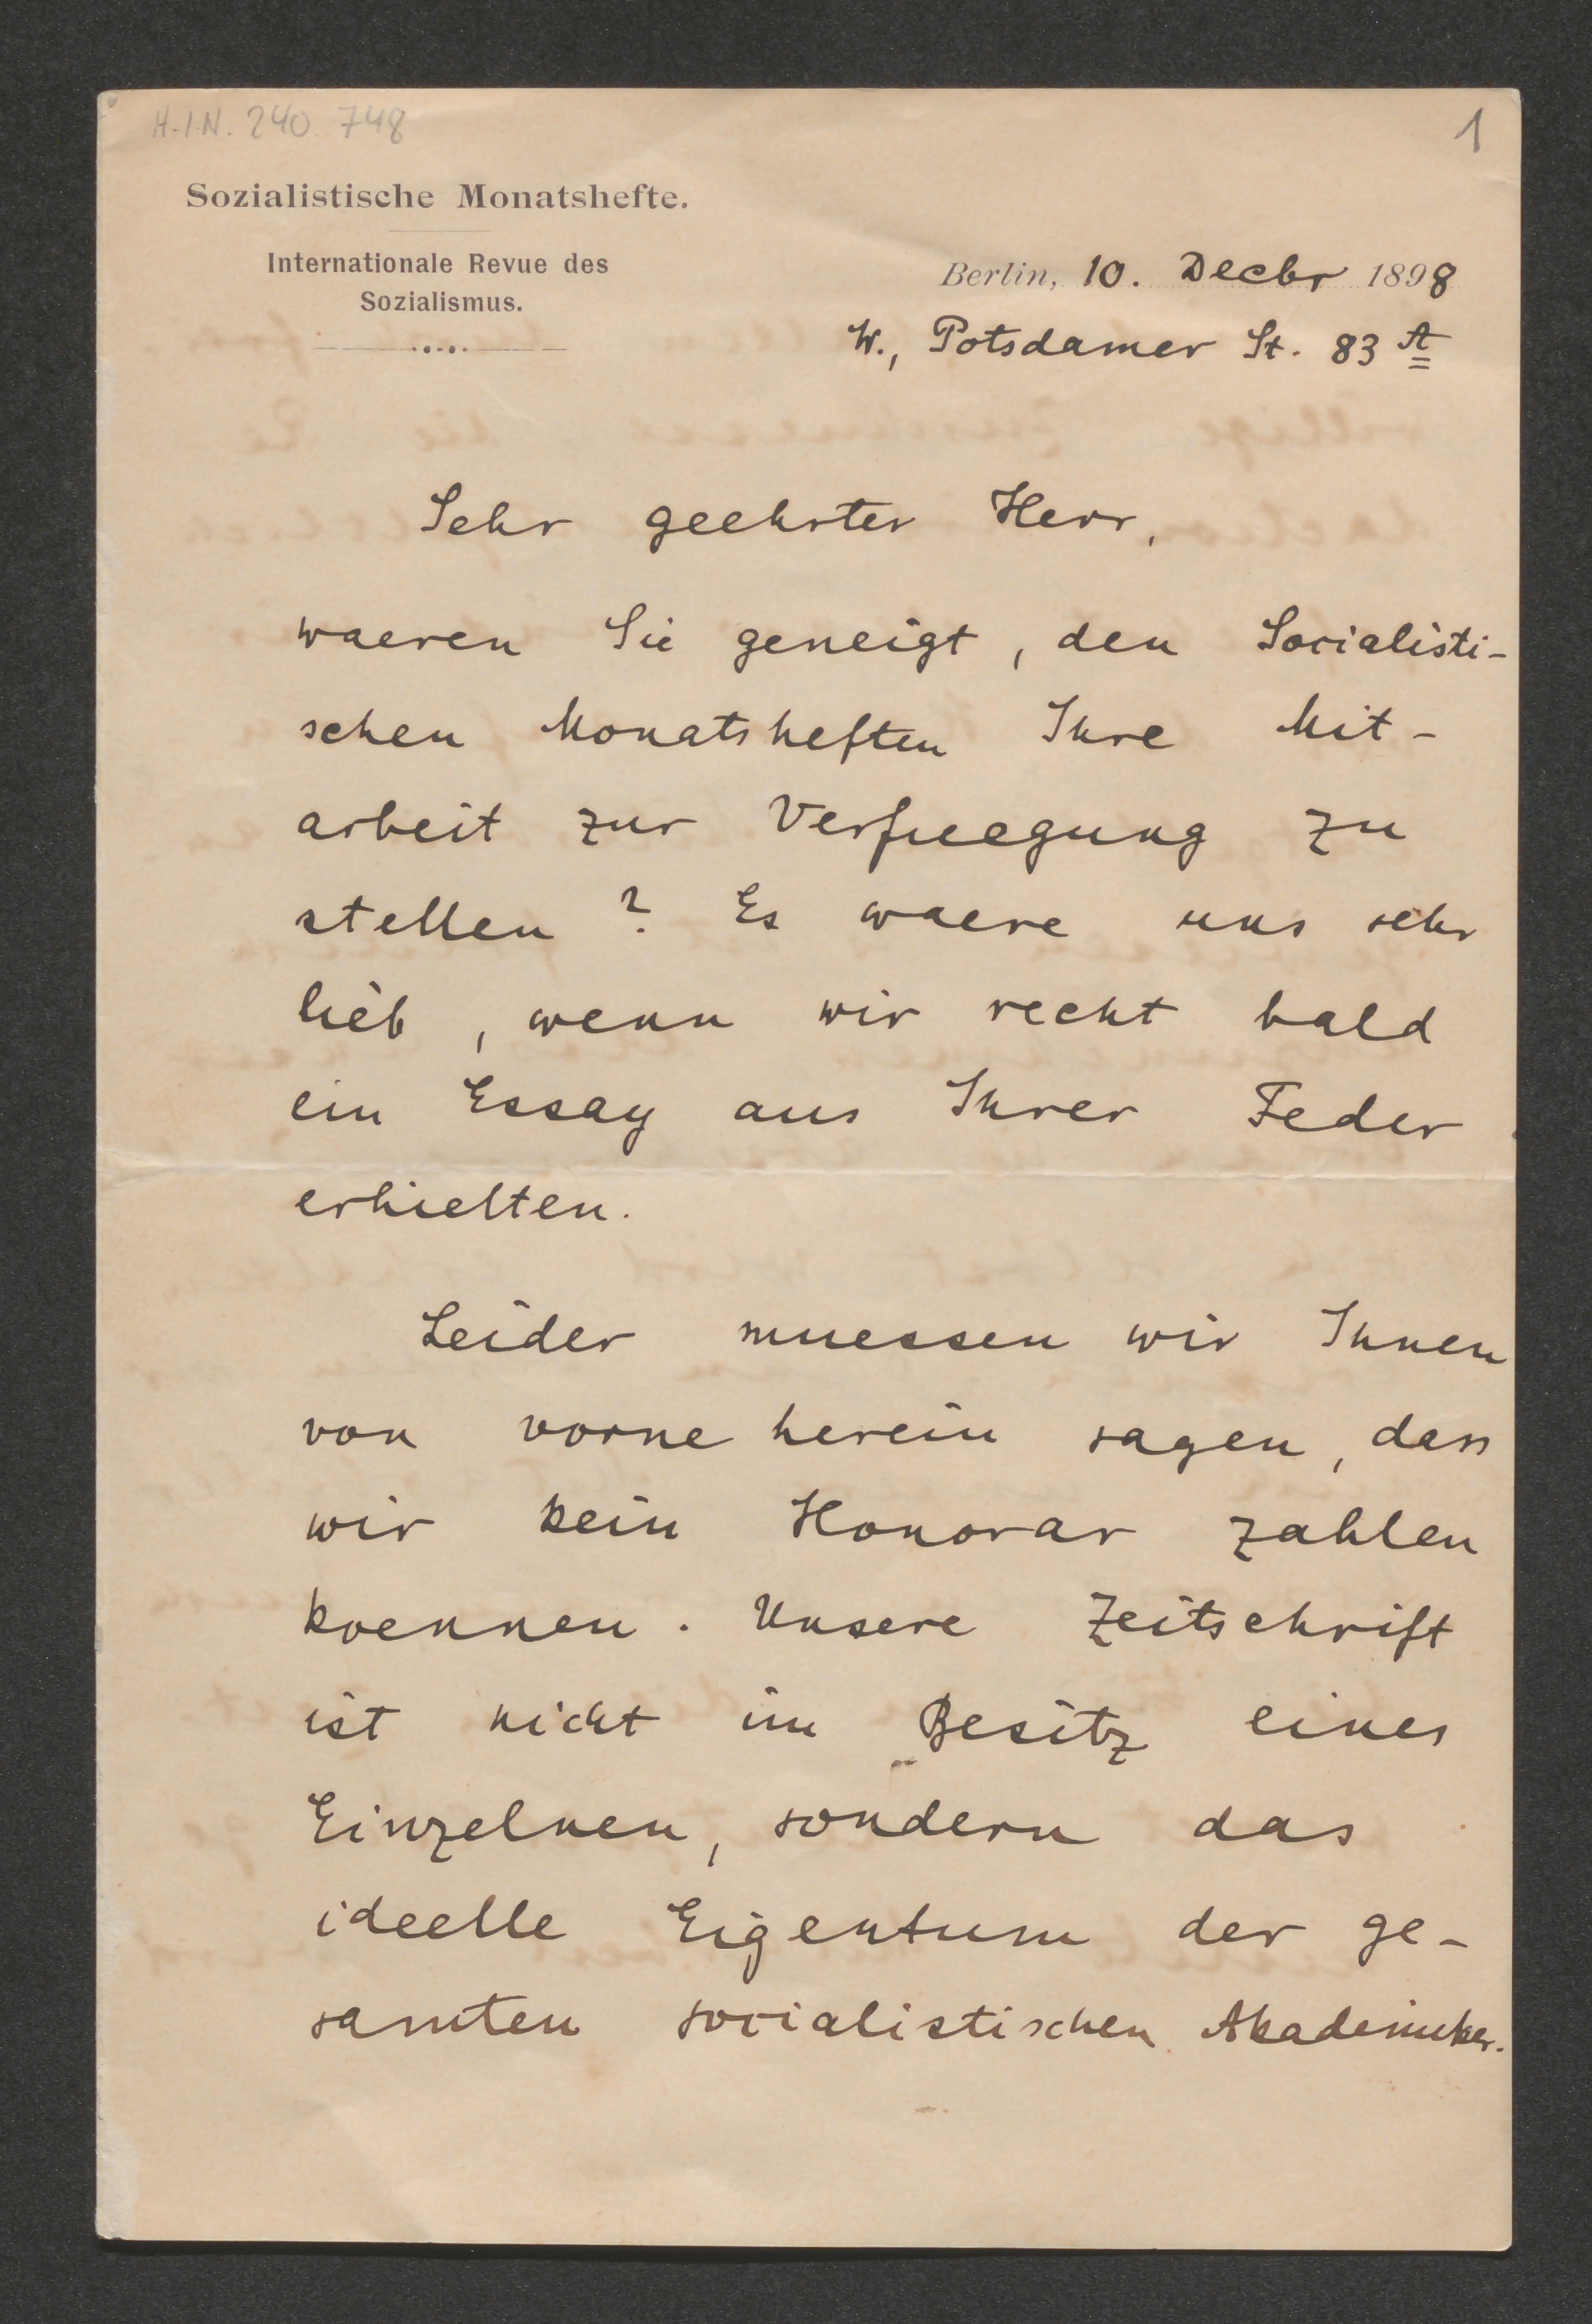 H.I.N. 240.748
1
Sozialistische Monatshefte.
Internationale Revue des
Sozialismus.
Berlin, 10. Decbr 1898
W., Potsdamer St. 83 A
Sehr geehrter Herr,
waeren Sie geneigt, den Socialisti-
schen Monatsheften Ihre Mit-
arbeit zur Verfuegung zu
stellen? Es waere uns sehr
lieb, wenn wir recht bald
ein Essay aus Ihrer Feder
erhielten.
Leider muessen wir Ihnen
von vorne herein sagen, dass
wir kein Honorar zahlen
koennen. Unsere Zeitschrift
ist nicht im Besitz eines
Einzelnen, sondern das
ideelle Eigentum der ge-
samten socialistischen Akademiker.